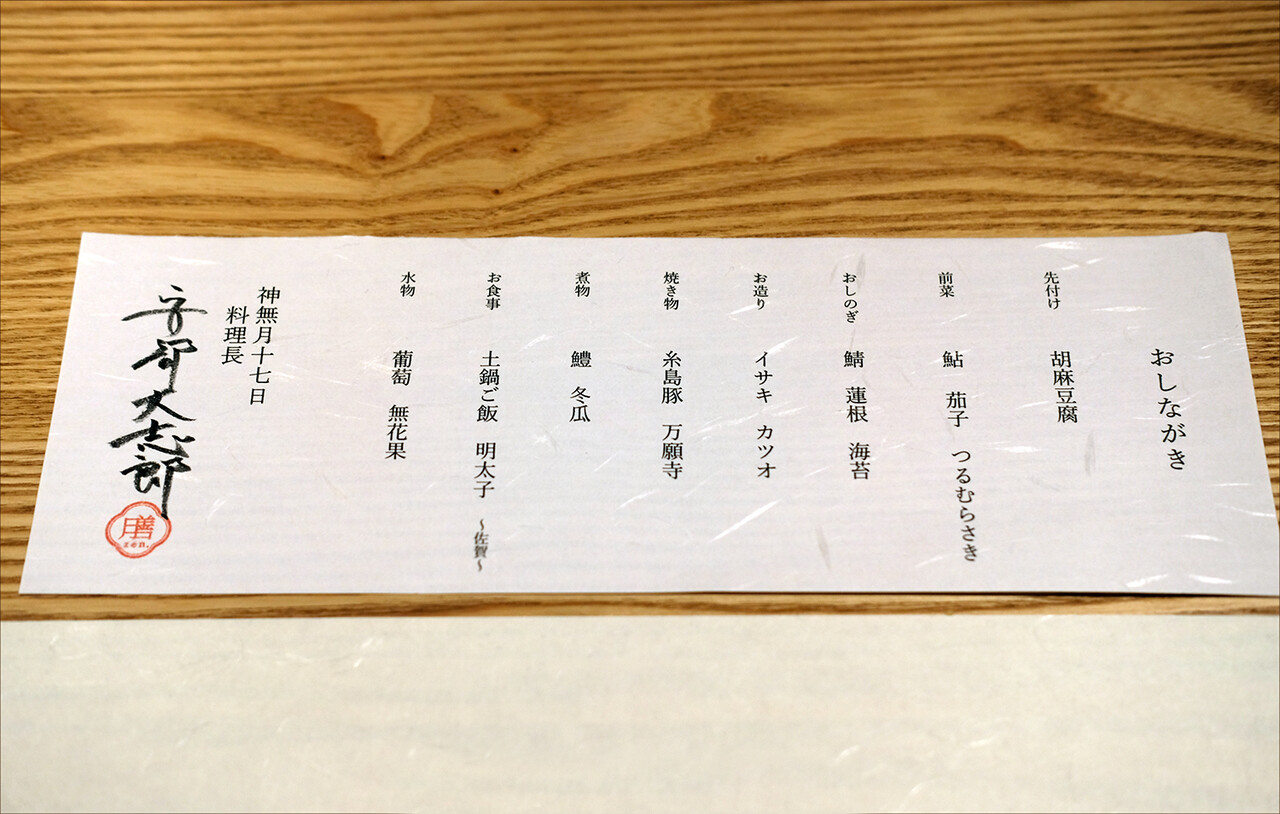 おしながき
先付け　胡麻豆腐
前菜　鮎　茄子　つるむらさき
おしのぎ　鯖　蓮根　海苔
お造り　イサキ　カツオ
焼き物　糸島豚　万願寺
煮物　鱧　冬瓜
お食事　土鍋ご飯　明太子　～佐賀～
水物　葡萄　無花果
神無月十七日
料理長
大志郎
膳
zen.